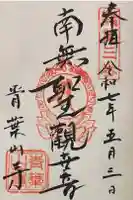 奉拝
令和七年五月三日
南無聖觀世音
青葉山寺